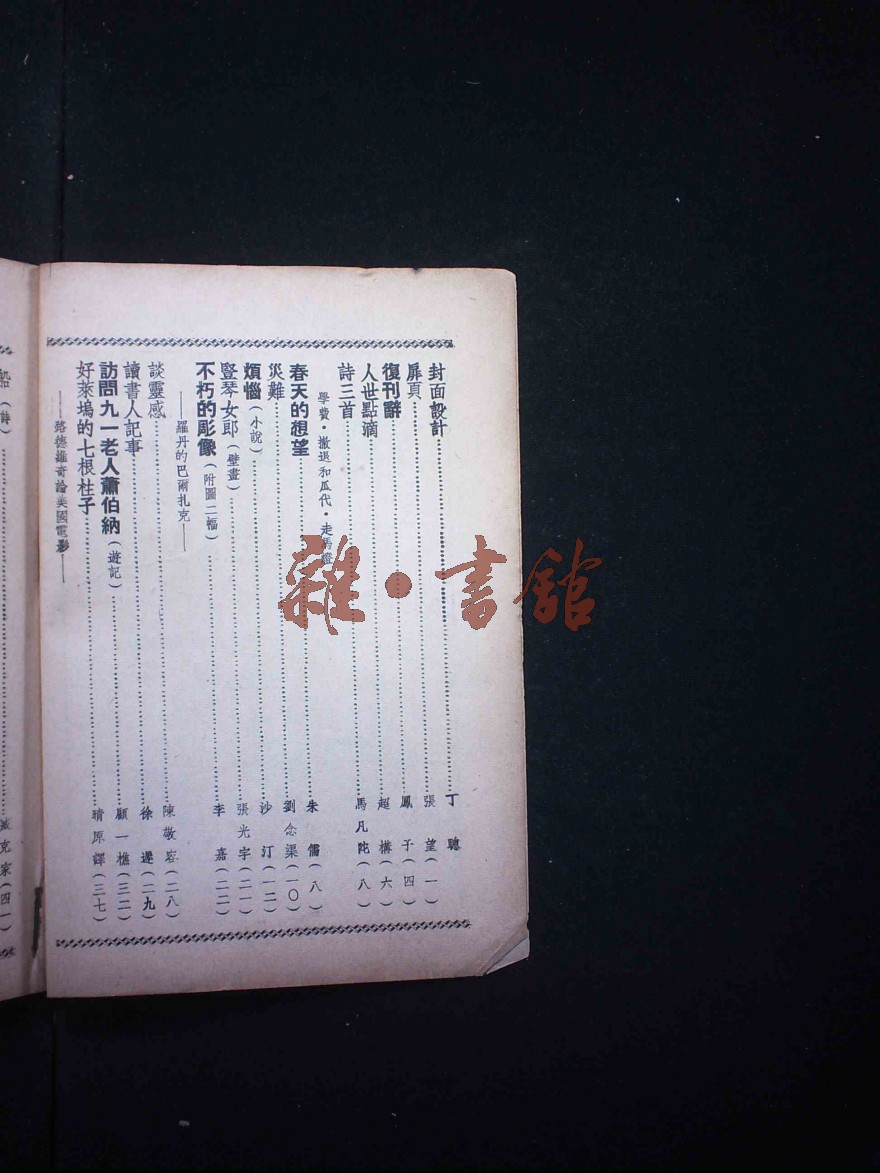 封面設計 丁聰
扉頁 張望(一)
復刊辭 鳳子(四)
人世點滴 超構(六)
詩三首 馬凡陀(八)
學費・撤退和瓜代・走馬燈
春天的想望 朱儒(八)
災難 劉念渠(一〇)
煩惱(小說) 沙汀(一二)
豎琴女郎(壁畫) 張光宇(二一)
不朽的彫像(附圖二幅) 李嘉(二二)
——羅丹的巴爾扎克——
談靈感 陳敬容(二八)
讀書人記事 徐遲(二九)
訪問九一老人蕭伯納(遊記) 顧一樵(三二)
好萊塢的七根柱子 晴原譯(三七)
——路德維奇論美國電影——
船(詩) 克家(四一)
雜・書館